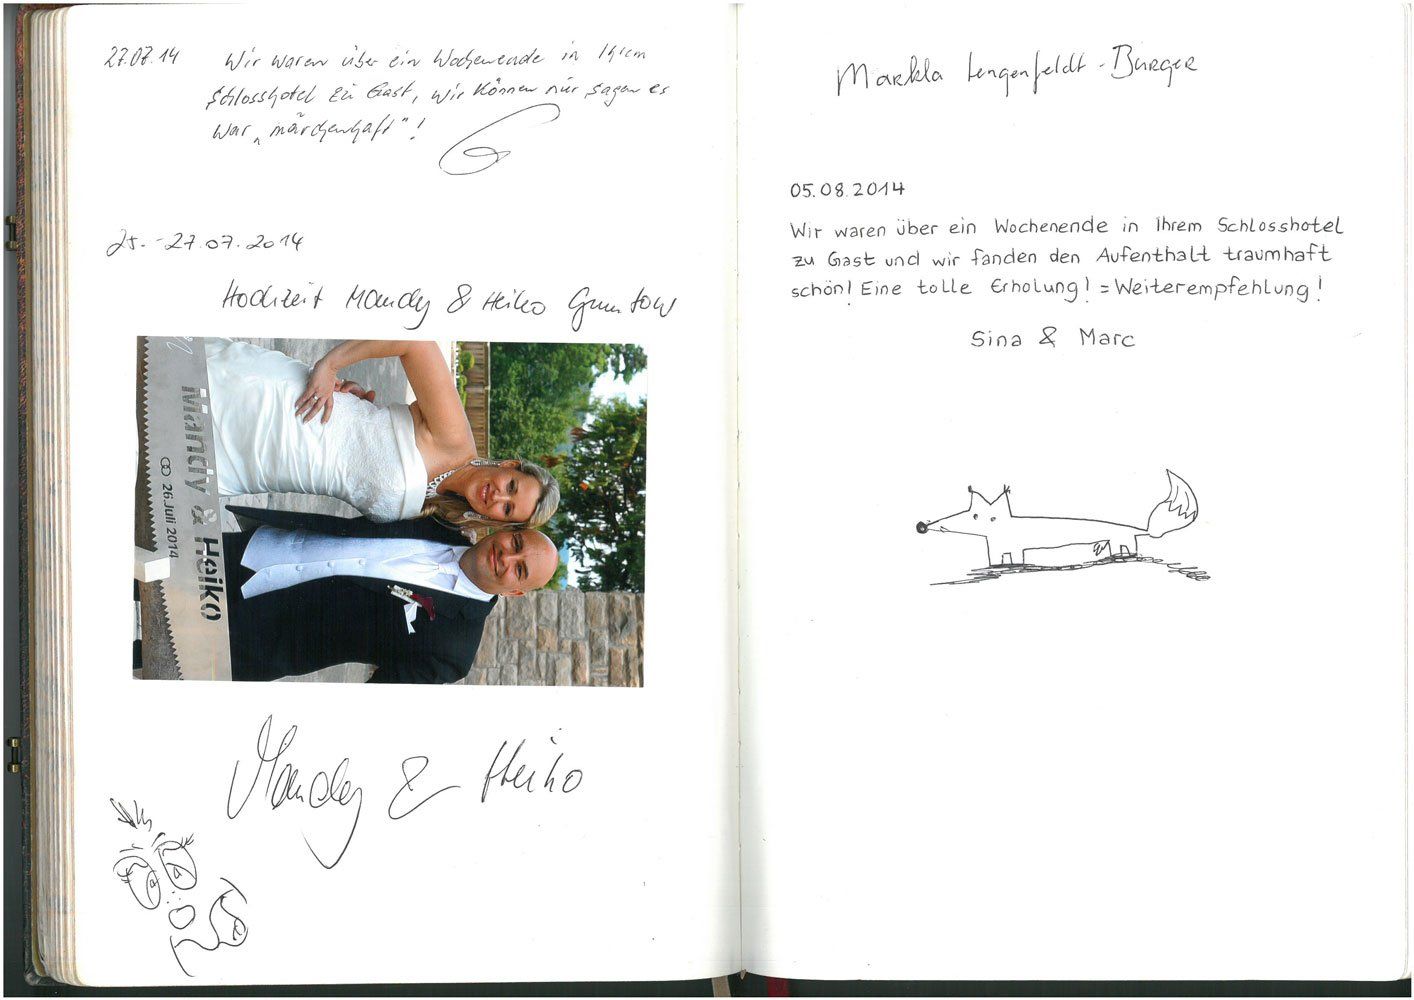 27.07.14 Wir waren über ein Wochenende in Ihrem
Schlosshotel zu Gast, wir können nur sagen es
war „märchenhaft"!
25.-27.07.2014
Hochzeit Mandy & Heiko
Mandy & Heiko
26. Juli 2014
Mandy & Heiko
Markla Lengenfeldt-Burger
05.08.2014
Wir waren über ein Wochenende in Ihrem Schlosshotel
zu Gast und wir fanden den Aufenthalt traumhaft
schön! Eine tolle Erholung! = Weiterempfehlung!
Sina & Marc